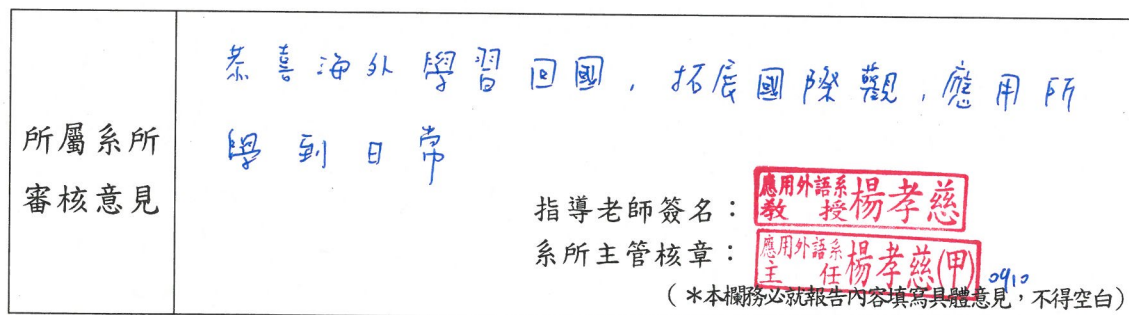 所屬系所
審核意見
恭喜海外學習回國，拓展國際觀，應用所
學到日常
指導老師簽名：
應用外語系
教授楊孝慈
系所主管核章：
應用外語系
主任楊孝慈(甲)
0910
（＊本欄務必就報告內容填寫具體意見，不得空白）